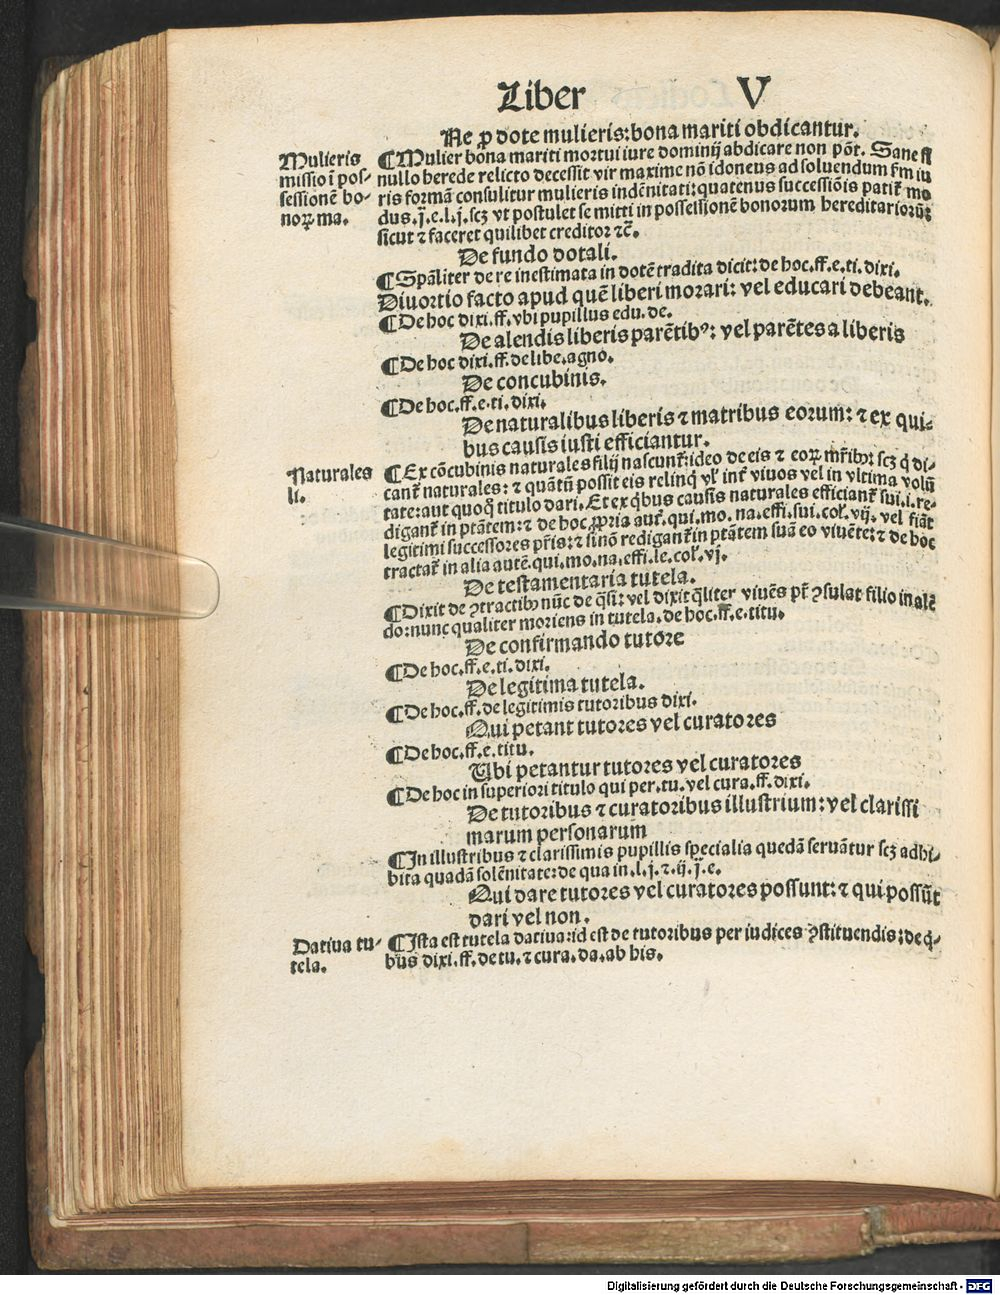 Liber V
Ne ꝓ dote mulieris: bona mariti obdicantur.
Mulieris
missio ĩ pos-
sessionẽ bo-
noꝝ ma.
¶ Mulier bona mariti mortui iure dominij abdicare non põt. Sane si
nullo herede relicto decessit vir maxime nõ idoneus ad soluendum ẜm iu
ris formã consulitur mulieris indẽnitati: quatenus successiõis patit᷑ mo
dus. j̈. e. l. j. scꝫ vt postulet se mitti in possessionẽ bonorum hereditarioꝝ:
sicut ⁊ faceret quilibet creditor ⁊c̃.
De fundo dotali.
¶ Spãliter de re inestimata in dotẽ tradita dicit: de hoc. ff. e. ti. dixi.
Diuortio facto apud quẽ liberi morari: vel educari debeant.
¶ De hoc dixi. ff. vbi pupillus edu. de.
De alendis liberis parẽtibꝰ: vel parẽtes a liberis
¶ De hoc dixi. ff. de libe. agno.
De concubinis.
¶ De hoc. ff. e. ti. dixi.
De naturalibus liberis ⁊ matribus eorum: ⁊ ex qui-
bus causis iusti efficiantur.
Naturales
li.
¶ Ex cõcubinis naturales filij nascunt᷑: ideo de eis ⁊ eoꝝ mr̃ibꝫ: scꝫ q̇ di-
cant᷑ naturales: ⁊ quãtũ possit eis relinq̇ vl᷑ int᷑ viuos vel in vltima volũ
tate: aut quoqͥ titulo dari. Et ex q̇bus causis naturales efficiant᷑ sui. i. re-
digant᷑ in ptãtem: ⁊ de hoc ꝓpria aut᷑. qui. mo. na. effi. sui. col᷑. vij. vel fiãt
legitimi successores pr̃is: ⁊ si nõ redigant᷑ in ptãtem suã eo viuẽte: ⁊ de hoc
tractat᷑ in alia autẽ. qui. mo. na. effi. le. col᷑. vj.
De testamentaria tutela.
¶ Dixit de ꝯtractibꝫ nũc de q̃si: vel dixit q̃liter viuẽs pr̃ ꝯsulat filio in alẽ
do: nunc qualiter moriens in tutela. de hoc. ff. e. titu.
De confirmando tutore
¶ De hoc. ff. e. ti. dixi.
De legitima tutela.
¶ De hoc. ff. de legitimis tutoribus dixi.
Qui petant tutores vel curatores
¶ De hoc. ff. e. titu.
Ubi petantur tutores vel curatores
¶ De hoc in superiori titulo qui per. tu. vel cura. ff. dixi.
De tutoribus ⁊ curatoribus illustrium: vel clarissi
marum personarum
¶ In illustribus ⁊ clarissimis pupillis specialia quedã seruãtur scꝫ adhi-
bita quadã solẽnitate: de qua in. l. j. ⁊. ij. j̈. e.
Qui dare tutores vel curatores possunt: ⁊ qui possũt
dari vel non.
Datiua tu-
tela.
¶ Ista est tutela datiua: id est de tutoribus per iudices ꝯstituendis: de q̇-
bus dixi. ff. de tu. ⁊ cura. da. ab his.
Digitalisierung gefördert durch die Deutsche Forschungsgemeinschaft - DFG